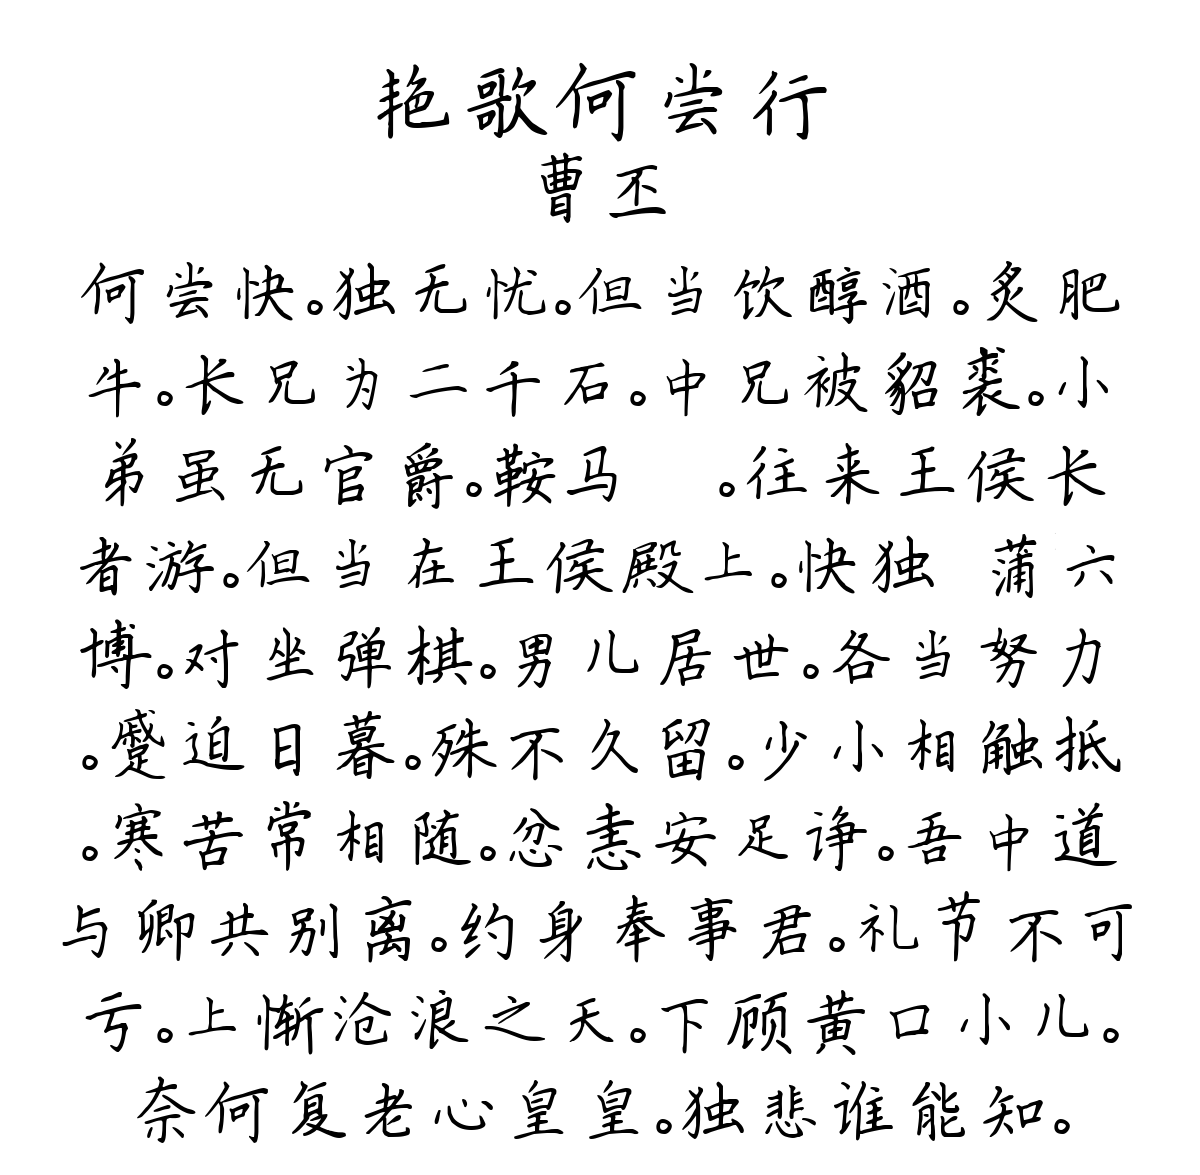 艳歌何尝行
曹丕
何尝快。独无忧。但当饮醇酒。炙肥
牛。长兄为二千石。中兄被貂裘。小
弟虽无官爵。鞍马 。往来王侯长
者游。但当在王侯殿上。快独 蒲六
博。对坐弹棋。男儿居世。各当努力
。蹙迫日暮。殊不久留。少小相触抵
。寒苦常相随。忿恚安足诤。吾中道
与卿共别离。约身奉事君。礼节不可
亏。上惭沧浪之天。下顾黄口小儿。
奈何复老心皇皇。独悲谁能知。